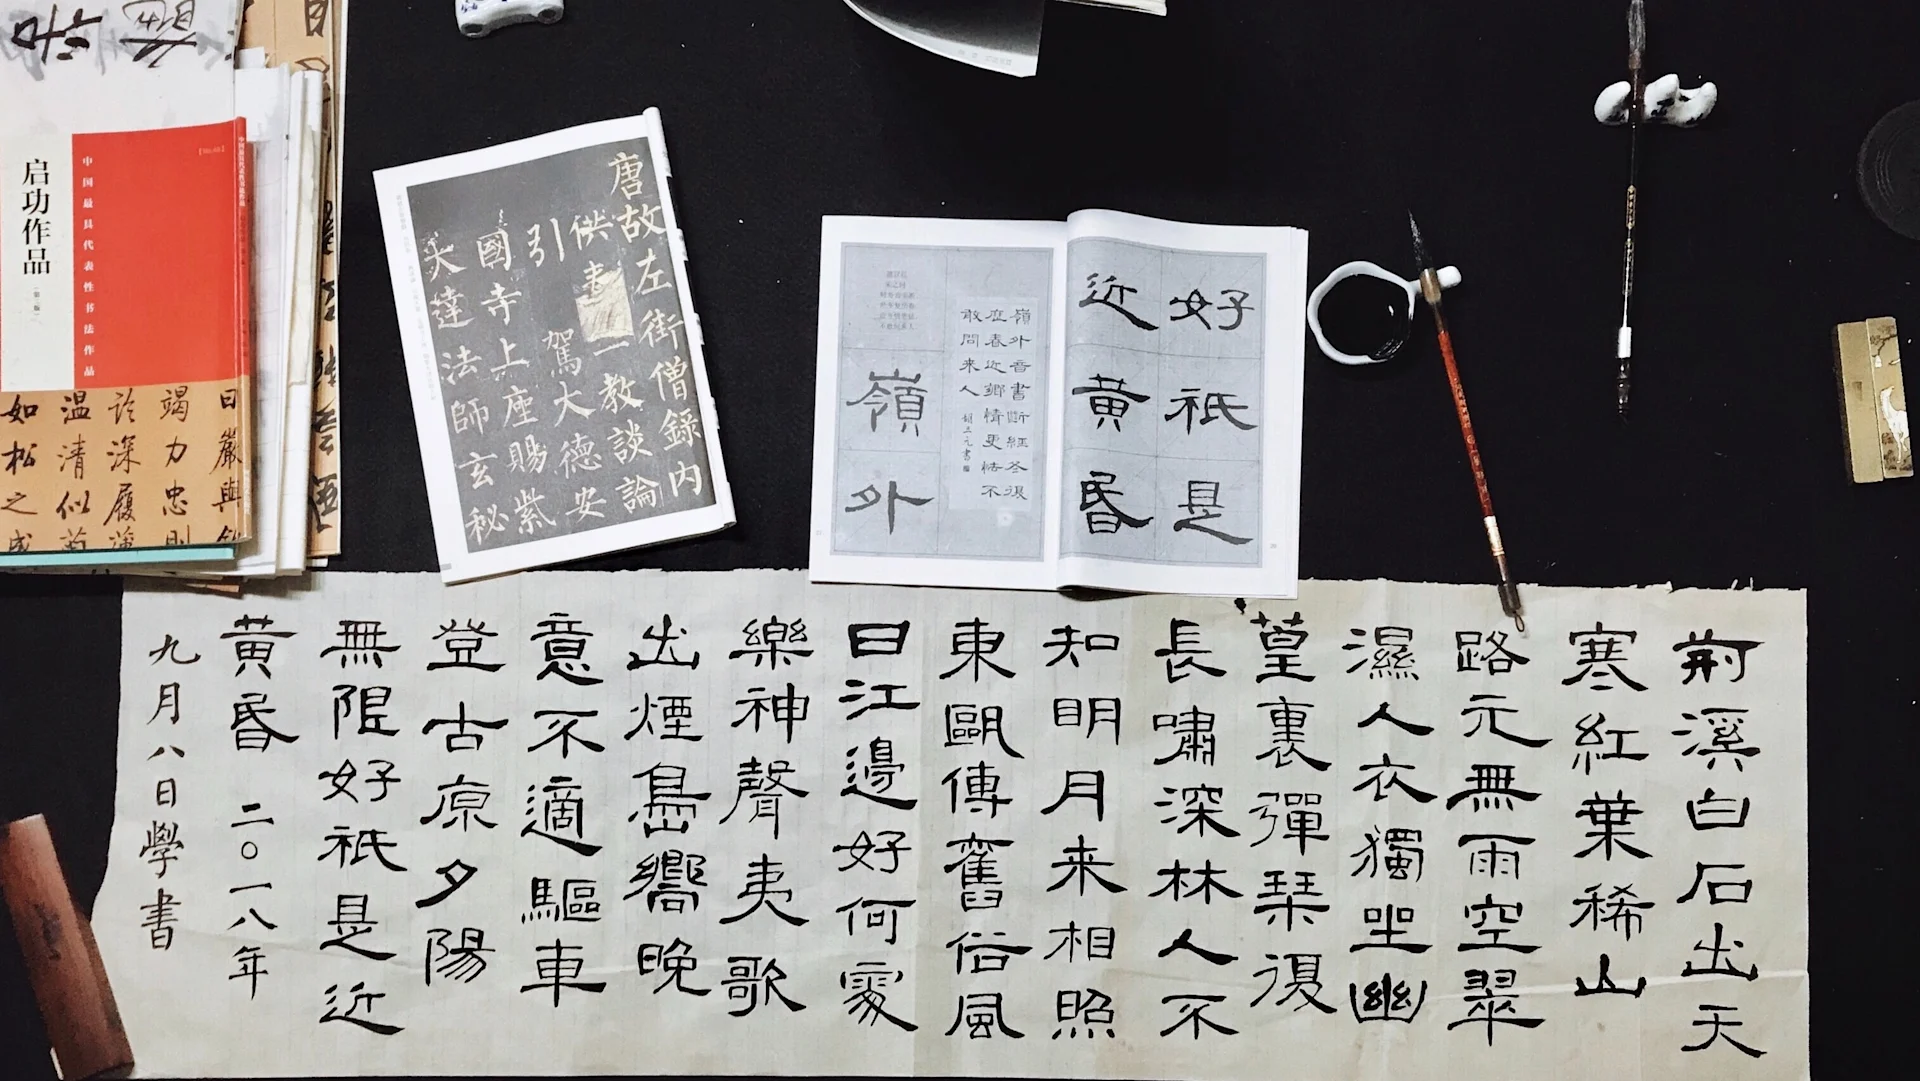 启功作品
(第二版)
中国最具代表性书法作品
曰嚴與
竭力忠則
深履
温清似
如松之
唐故左街僧錄內
供奉
教談論
引駕大德安
國寺上座賜紫
大達法師玄秘
好祇是
近黃昏
嶺外音書断經冬復
歷春近鄉情更怯不
敢問来人
嶺外
荊溪白石出天
寒紅葉稀山
路元無雨空翠
濕人衣獨坐幽
篁裏彈琴復
長嘯深林人不
知明月来相照
東甌傳舊俗風
日江邊好何處
樂神聲夷歌
出煙島嚮晚
意不適驅車
登古原夕陽
無限好祇是近
黃昏 二〇一八年
九月八日學書